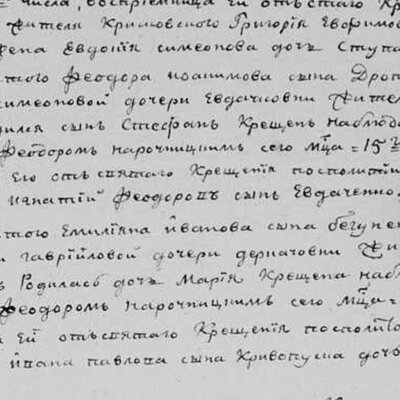 числа, воспрїемница ей отъ святаго
жителя Климовского Григорїя Евфимов
жена Евдокїя симеонова дочь Ступа
того Феодора иоакимова сына Дроп
симеоновой дочери Евдачковни жител
дился сынъ Стефанъ Крещенъ наблюд
Феодоромъ нарочницкимъ сего мца = 15
Его отъ святаго Крещенїя посполитїи
игнатїй Феодоровъ сынъ Евдаченко
того Емилїяна Иванова сына бегун
гаврїиловой дочери деркачовни жи
Родилась дочь Марїя Крещена наб
Феодоромъ нарочницкимъ сего мца =
ей отъ святаго Крещенїя посполи
ивана павлова сына Кривопуска доч